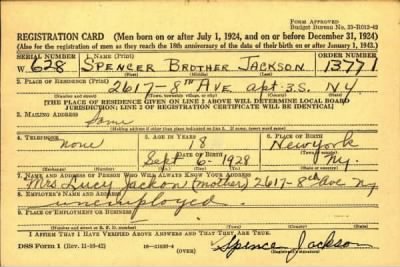 FORM APPROVED
Budget Bureau No. 33-R013-42
REGISTRATION CARD (Men born on or after July 1, 1924, and on or before December 31, 1924)
(Also for the registration of men as they reach the 18th anniversary of the date of their birth on or after January 1, 1943.)
SERIAL NUMBER 1. NAME (Print) ORDER NUMBER
W 628 SPENCER BROTHER JACKSON 13771
(First) (Middle) (Last)
2. PLACE OF RESIDENCE (Print)
2617-8th AVE apt. 3.S. N.Y.
(Number and street) (Town, township, village, or city) (County) (State)
[THE PLACE OF RESIDENCE GIVEN ON LINE 2 ABOVE WILL DETERMINE LOCAL BOARD
JURISDICTION; LINE 2 OF REGISTRATION CERTIFICATE WILL BE IDENTICAL]
3. MAILING ADDRESS
Same
[Mailing address if other than place indicated on line 2. If same, insert word same]
4. TELEPHONE 5. AGE IN YEARS 6. PLACE OF BIRTH
none 18 New York
DATE OF BIRTH
Sept 6, 1928 Ny.
(Exchange) (Number) (Mo.) (Day) (Yr.) (State or country)
7. NAME AND ADDRESS OF PERSON WHO WILL ALWAYS KNOW YOUR ADDRESS
Mrs Lucy Jackson (mother) 2617-8th Ave Ny
8. EMPLOYER'S NAME AND ADDRESS
unemployed.
9. PLACE OF EMPLOYMENT OR BUSINESS
(Number and street or R. F. D. number) (Town) (County) (State)
I AFFIRM THAT I HAVE VERIFIED ABOVE ANSWERS AND THAT THEY ARE TRUE.
DSS Form 1 (Rev. 11-16-42) Spence Jackson
(Registrant's signature)